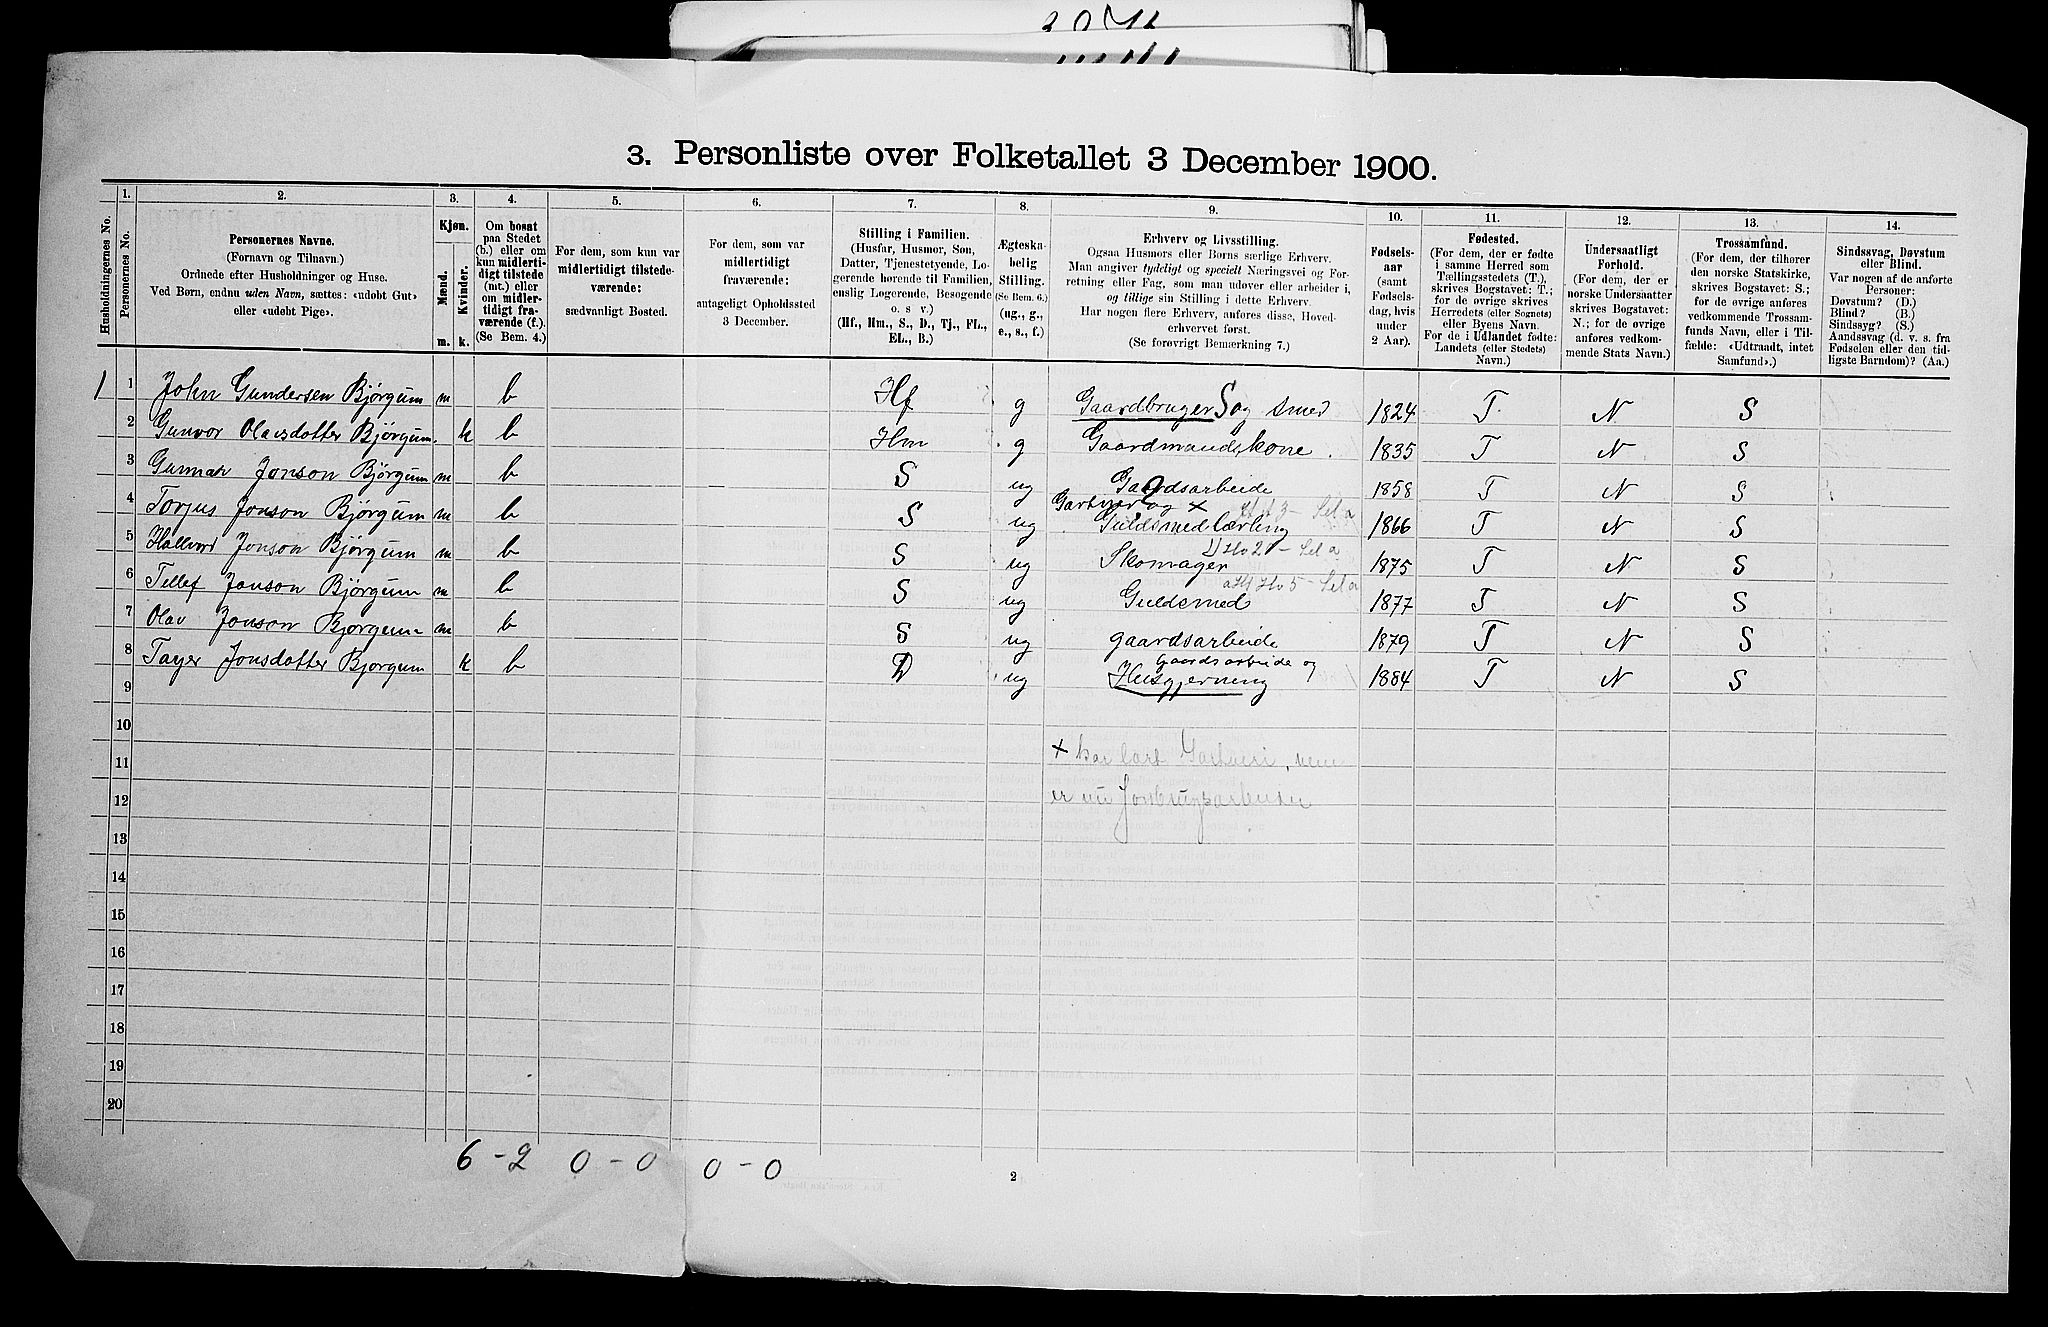 3. Personliste over Folketallet 3 December 1900.
1. 2. 3. 4. 5. 6. 7. 8. 9. 10. 11. 12. 13. 14.
Husholdningernes No.
Personernes No.
Personernes Navne.
(Fornavn og Tilnavn.)
Ordnede efter Husholdninger og Huse.
Ved Børn, endnu uden Navn, sættes: «udøbt Gut»
eller «udøbt Pige».
Kjøn.
Mænd.
Kvinder.
m. k.
Om bosat
paa Stedet
(b.) eller om
kun midlerti-
digt tilstede
(mt.) eller
om midler-
tidigt fra-
værende (f.).
(Se Bem. 4.)
For dem, som kun var
midlertidigt tilstede-
værende:
sædvanligt Bosted.
For dem, som var
midlertidigt
fraværende:
antageligt Opholdssted
3 December.
Stilling i Familien.
(Husfar, Husmor, Søn,
Datter, Tjenestetyende, Lo-
gerende hørende til Familien,
enslig Logerende, Besøgende
o. s v.)
(Hf., Hm., S., D., Tj., FL.,
EL., B.)
Ægteska-
belig
Stilling.
(Se Bem. 6.)
(ug., g.,
e., s., f.)
Erhverv og Livsstilling.
Ogsaa Husmors eller Børns særlige Erhverv.
Man angiver tydeligt og specielt Næringsvei og For-
retning eller Fag, som man udøver eller arbeider i,
og tillige sin Stilling i dette Erhverv.
Har nogen flere Erhverv, anføres disse, Hoved-
erhvervet først.
(Se forøvrigt Bemærkning 7.)
Fødsels-
aar
(samt
Fødsels-
dag, hvis
under
2 Aar).
Fødested.
(For dem, der er fødte
i samme Herred som
Tællingsstedets (T.),
skrives Bogstavet: T.;
for de øvrige skrives
Herredets (eller Sognets)
eller Byens Navn.
For de i Udlandet fødte:
Landets (eller Stedets)
Navn.)
Undersaatligt
Forhold.
(For dem, der er
norske Undersaatter
skrives Bogstavet:
N.; for de øvrige
anføres vedkom-
mende Stats Navn.)
Trossamfund.
(For dem, der tilhører
den norske Statskirke,
skrives Bogstavet: S.;
for de øvrige anføres
vedkommende Trossam-
funds Navn, eller i Til-
fælde: «Udtraadt, intet
Samfund».)
Sindssvag, Døvstum
eller Blind.
Var nogen af de anførte
Personer:
Døvstum? (D.)
Blind? (B.)
Sindssyg? (S.)
Aandssvag (d. v. s. fra
Fødselen eller den tid-
ligste Barndom)? (Aa.)
1 1 John Gundersen Bjørgum m b Hf g Gaardbruger S og Smed 1824 T. N S
2 Gunvor Olavsdotter Bjørgum. k b Hm g Gaardmandskone. 1835 T N S
3 Gunnar Jonson Bjørgum m b S ug Gaardsarbeide 1858 T N S
4 Torjus Jonson Bjørgum m b S ug Gartner og × Guldsmedlærling 1866 T N S
5 Hallvord Jonson Bjørgum m b S ug Skomager 1875 T N S
6 Tellef Jonson Bjørgum m b S ug Guldsmed 1877 T N S
7 Olav Jonson Bjørgum m b S ug gaardsarbeide 1879 T N S
8 Tayer Jonsdotter Bjorgum k b D ug Gaardsarbeide og Husgjerning 1884 T N S
9
10
11 × har lært Gartneri, men
12 er nu Jordbrugsarbeider
13
14
15
16
17
18
19
20
6 - 2 0 - 0 0 - 0
2